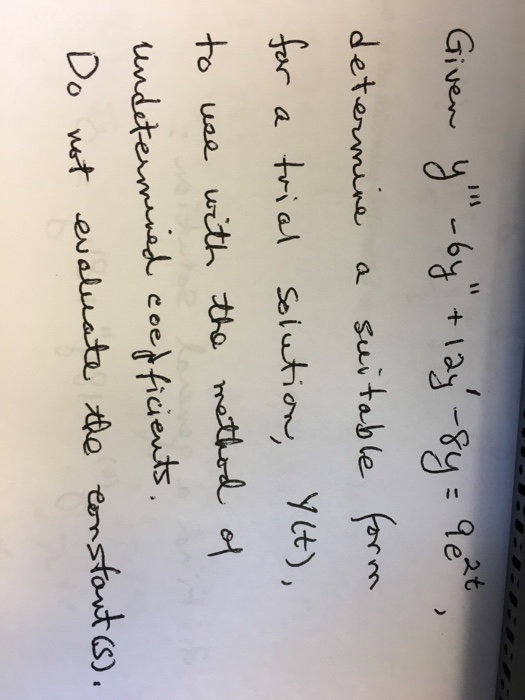 Given y''' - 6y'' + 12y' - 8y = 9e^{2t},
determine a suitable form
for a trial solution, Y(t),
to use with the method of
undetermined coefficients.
Do not evaluate the constant(s).